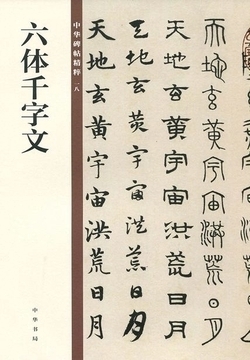 六体千字文
中华碑帖精粹 一八
中华书局
天地玄黄宇宙洪荒日月
天地玄黄宇宙洪荒日月
天地玄黄宇宙洪荒日月
天地玄黄宇宙洪荒日月